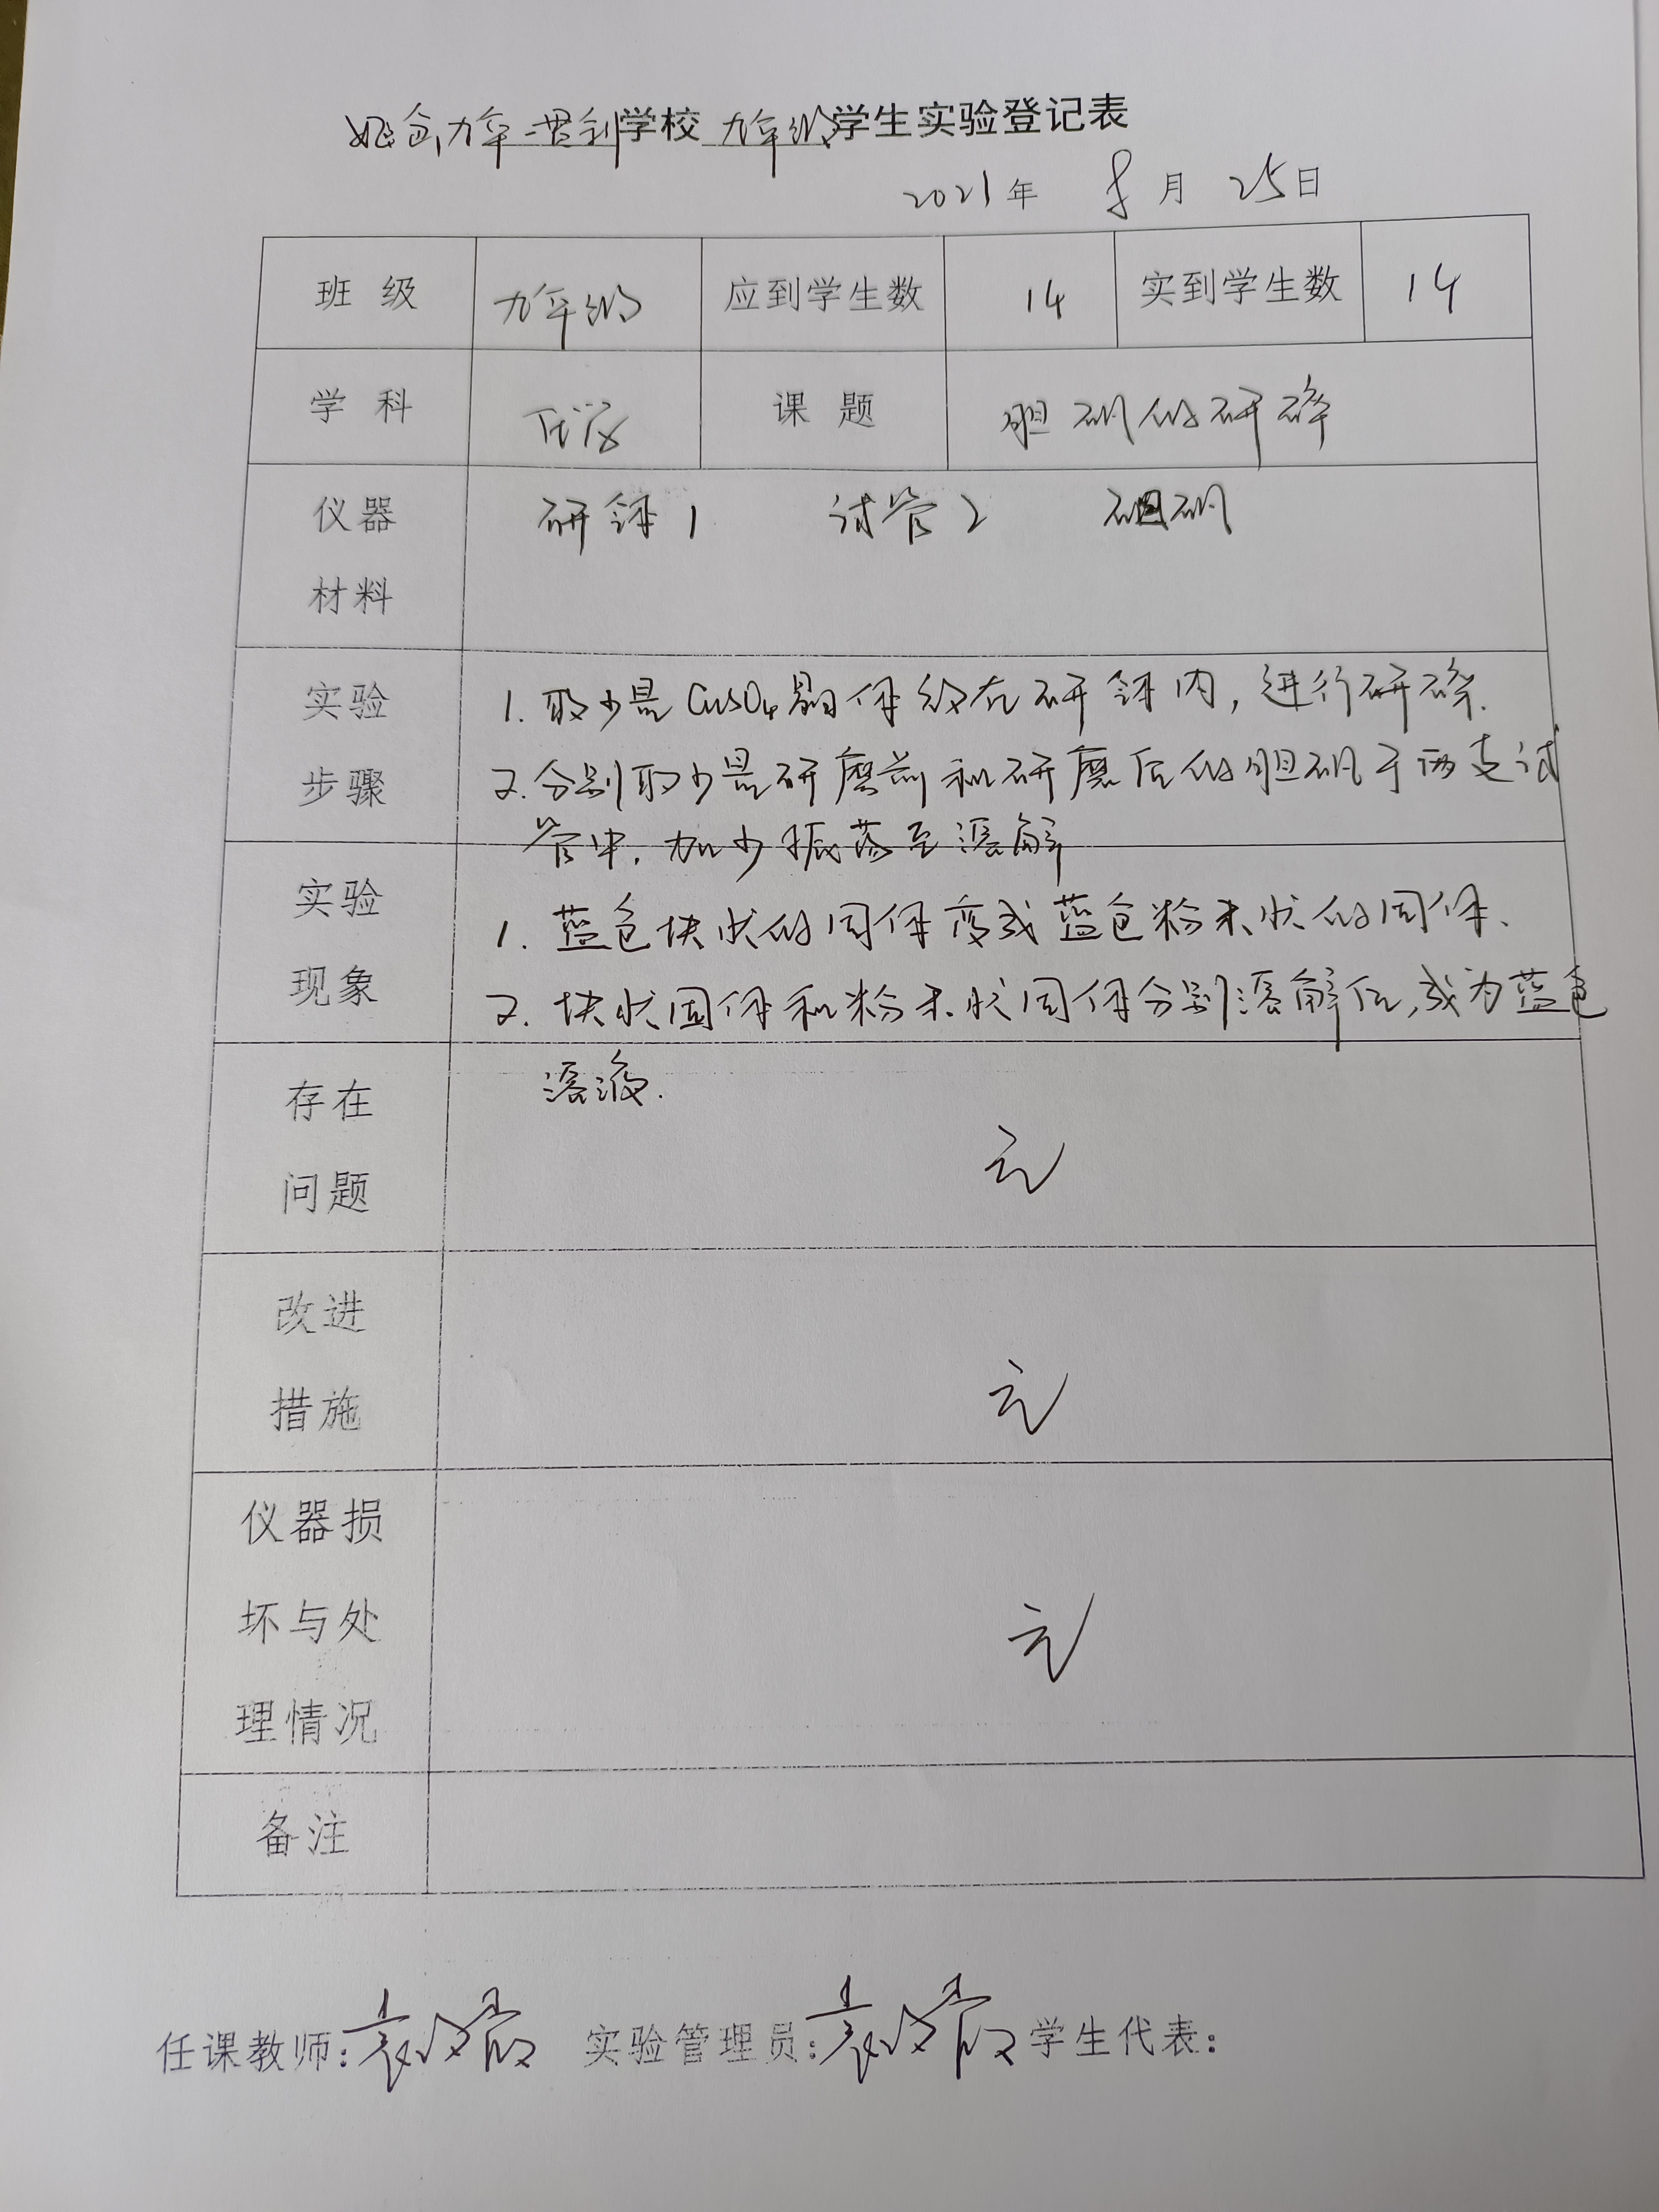 九年一贯制学校 九年级学生实验登记表
2021年 8月 25日
班级 九年级 应到学生数 14 实到学生数 14
学科 化学 课题 胆矾的研碎
仪器 研钵1 试管2 胆矾
材料
实验 1. 取少量CuSO4晶体放在研钵内，进行研碎.
步骤 2. 分别取少量研磨前和研磨后的胆矾于两支试
管中，加少振荡至溶解
实验 1. 蓝色块状的固体变成蓝色粉末状的固体、
现象 2. 块状固体和粉末状固体分别溶解后，成为蓝色
溶液.
存在 无
问题
改进 无
措施
仪器损
坏与处 无
理情况
备注
任课教师: 实验管理员: 学生代表: